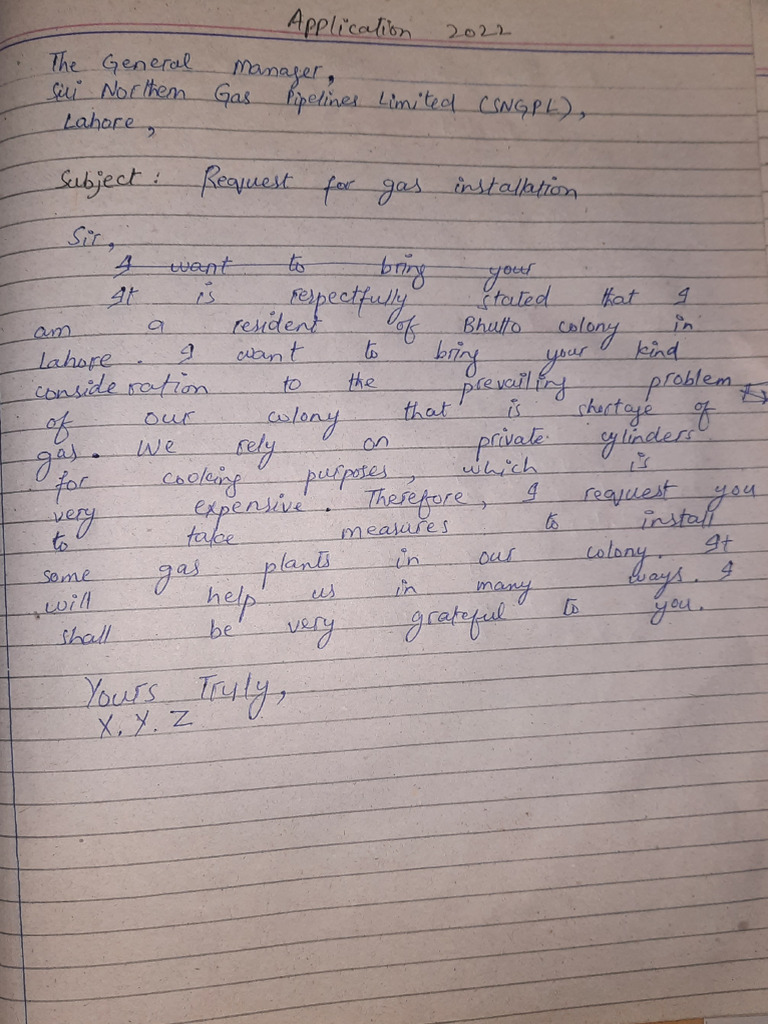 Application 2022
The General Manager,
Sui Northern Gas Pipelines Limited (SNGPL),
Lahore,
Subject: Request for gas installation
Sir,
I want to bring your
It is respectfully stated that I
am a resident of Bhutto colony in
Lahore. I want to bring your kind
consideration to the prevailing problem
of our colony that is shortage of
gas. We rely on private cylinders
for cooking purposes, which is
very expensive. Therefore, I request you
to take measures to install
some gas plants in our colony. It
will help us in many ways. I
shall be very grateful to you.
Yours Truly,
X. Y. Z